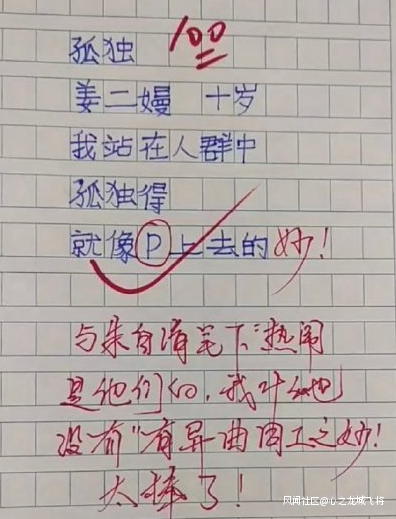 孤独 100
姜二嫚 十岁
我站在人群中
孤独得
就像P上去的 妙!
与朱自清笔下“热闹
是他们的,我什么也
没有”有异曲同工之妙!
太棒了!
风闻社区@心之龙城飞将